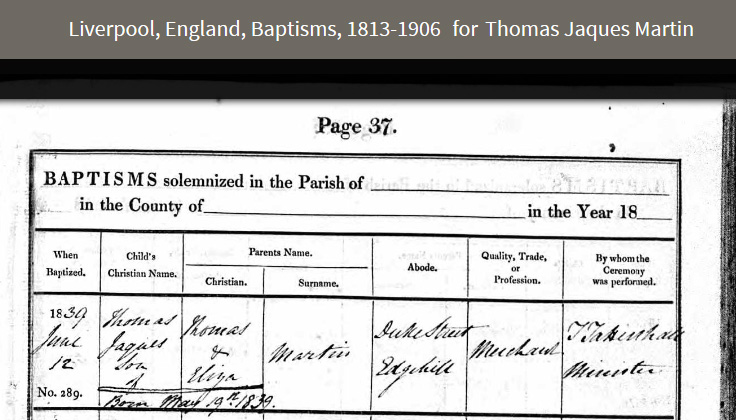 Liverpool, England, Baptisms, 1813-1906 for Thomas Jaques Martin
Page 37.
BAPTISMS solemnized in the Parish of
in the County of in the Year 18
When Baptized.
Child's Christian Name.
Parents Name.
Christian.
Surname.
Abode.
Quality, Trade, or Profession.
By whom the Ceremony was performed.
1839
June
12
No. 289.
Thomas
Jaques
Son
of
Thomas
&
Eliza
Martin
Duke Street
Edgehill
Merchant
Minister
Born May 19th 1839.